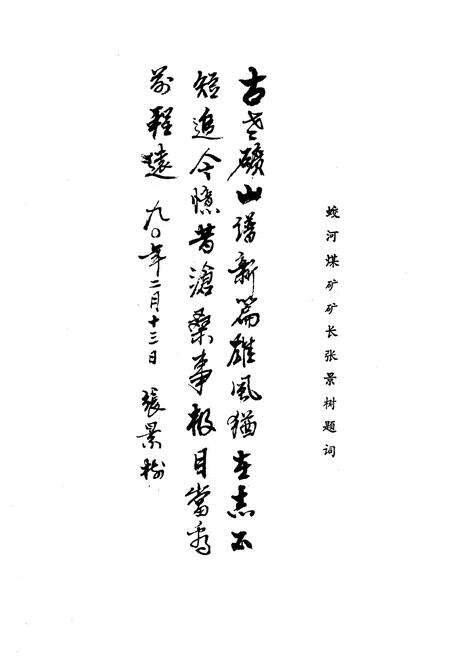 蛟河煤矿矿长张景树题词
古老礦山谱新篇雄風猶在志不
短追今憶昔滄桑事极目當看
前程遠 九〇年二月十三日 張景树